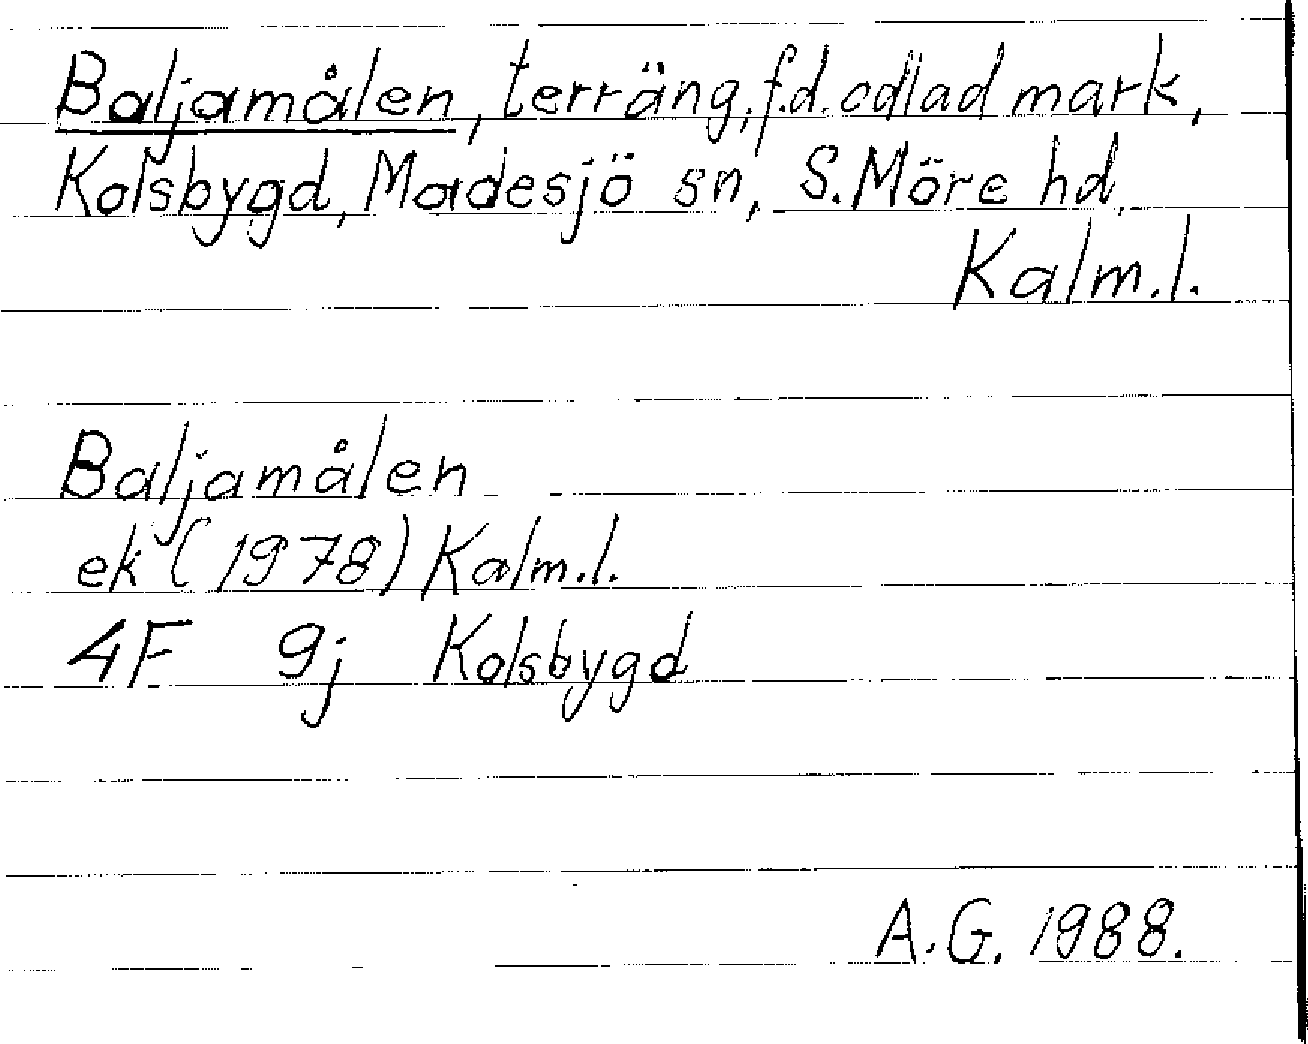 Baljamålen, terräng, f.d. odlad mark,
Kolsbygd, Madesjö sn, S. Möre hd,
Kalm.l.
Baljamålen
ek (1978) Kalm.l.
4F 9j Kolsbygd
A.G. 1988.